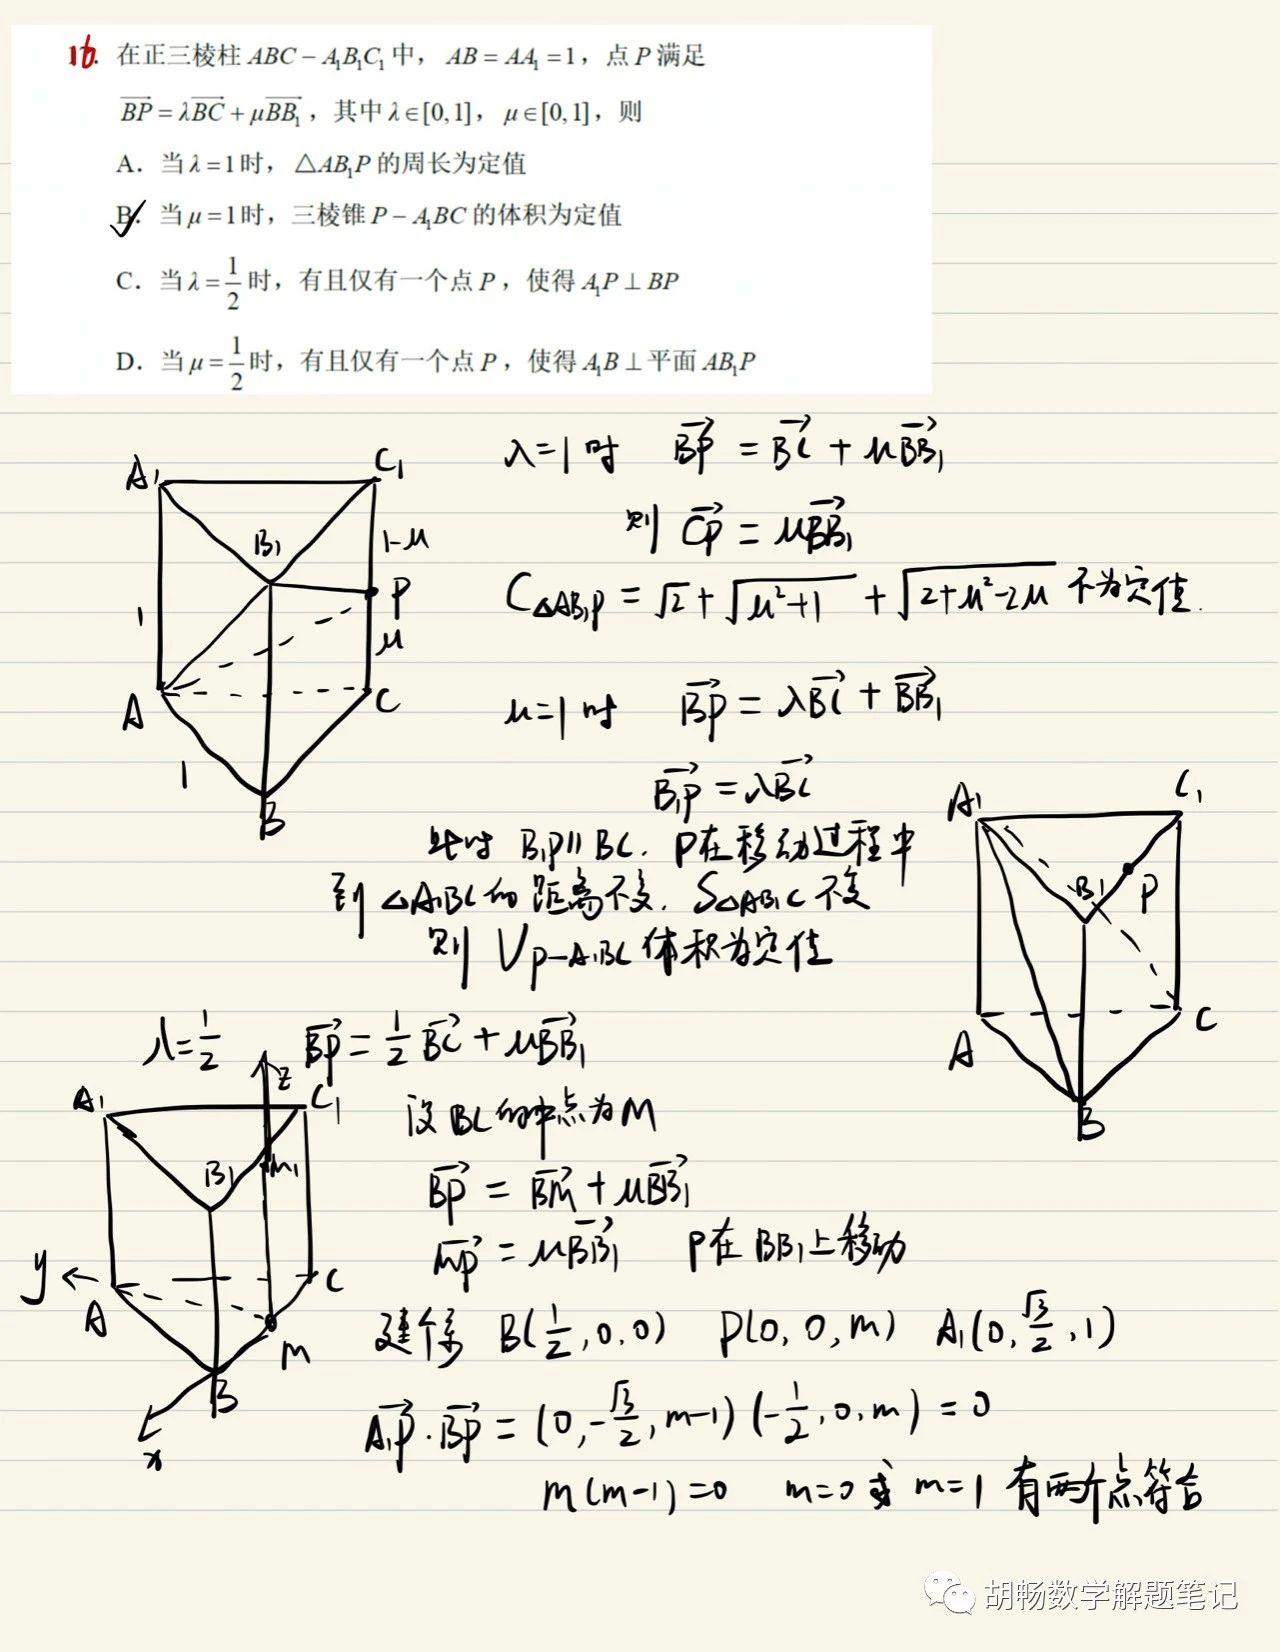 16. 在正三棱柱 ABC − A₁B₁C₁ 中， AB = AA₁ = 1 ，点 P 满足
$\overrightarrow{BP} = λ\overrightarrow{BC} + μ\overrightarrow{BB_1}$ ，其中 λ∈[0,1]， μ∈[0,1] ，则
A．当 λ = 1 时，△AB₁P 的周长为定值
B．当 μ = 1 时，三棱锥 P − A₁BC 的体积为定值
C．当 λ = $\frac{1}{2}$ 时，有且仅有一个点 P ，使得 A₁P ⊥ BP
D．当 μ = $\frac{1}{2}$ 时，有且仅有一个点 P ，使得 A₁B ⊥ 平面 AB₁P
A₁ C₁
B₁ 1-μ
P
1 μ
A C
1
B
λ=1时 $\overrightarrow{BP} = \overrightarrow{BC} + μ\overrightarrow{BB_1}$
则 $\overrightarrow{CP} = μ\overrightarrow{BB_1}$
$C_{△AB_1P} = \sqrt{2} + \sqrt{μ^2+1} + \sqrt{2+μ^2-2μ}$ 不为定值.
μ=1时 $\overrightarrow{BP} = λ\overrightarrow{BC} + \overrightarrow{BB_1}$
$\overrightarrow{B_1P} = λ\overrightarrow{BC}$
此时 B₁P∥BC. P在移动过程中
到△A₁BC的距离不变. S△AB₁C 不变
则 V_{P-A₁BC} 体积为定值
A₁ C₁
B₁ P
A C
B
λ=$\frac{1}{2}$ $\overrightarrow{BP} = \frac{1}{2}\overrightarrow{BC} + μ\overrightarrow{BB_1}$
z
A₁ C₁
B₁ M₁
y
A C
M
B
x
设BC的中点为M
$\overrightarrow{BP} = \overrightarrow{BM} + μ\overrightarrow{BB_1}$
$\overrightarrow{MP} = μ\overrightarrow{BB_1}$ P在BB₁上移动
建系 B($\frac{1}{2}$,0,0) P(0,0,m) A₁(0,$\frac{\sqrt{3}}{2}$,1)
$\overrightarrow{A_1P}·\overrightarrow{BP}$ = (0,-$\frac{\sqrt{3}}{2}$,m-1)(-$\frac{1}{2}$,0,m) = 0
m(m-1)=0 m=0或m=1 有两个点符合
胡畅数学解题笔记